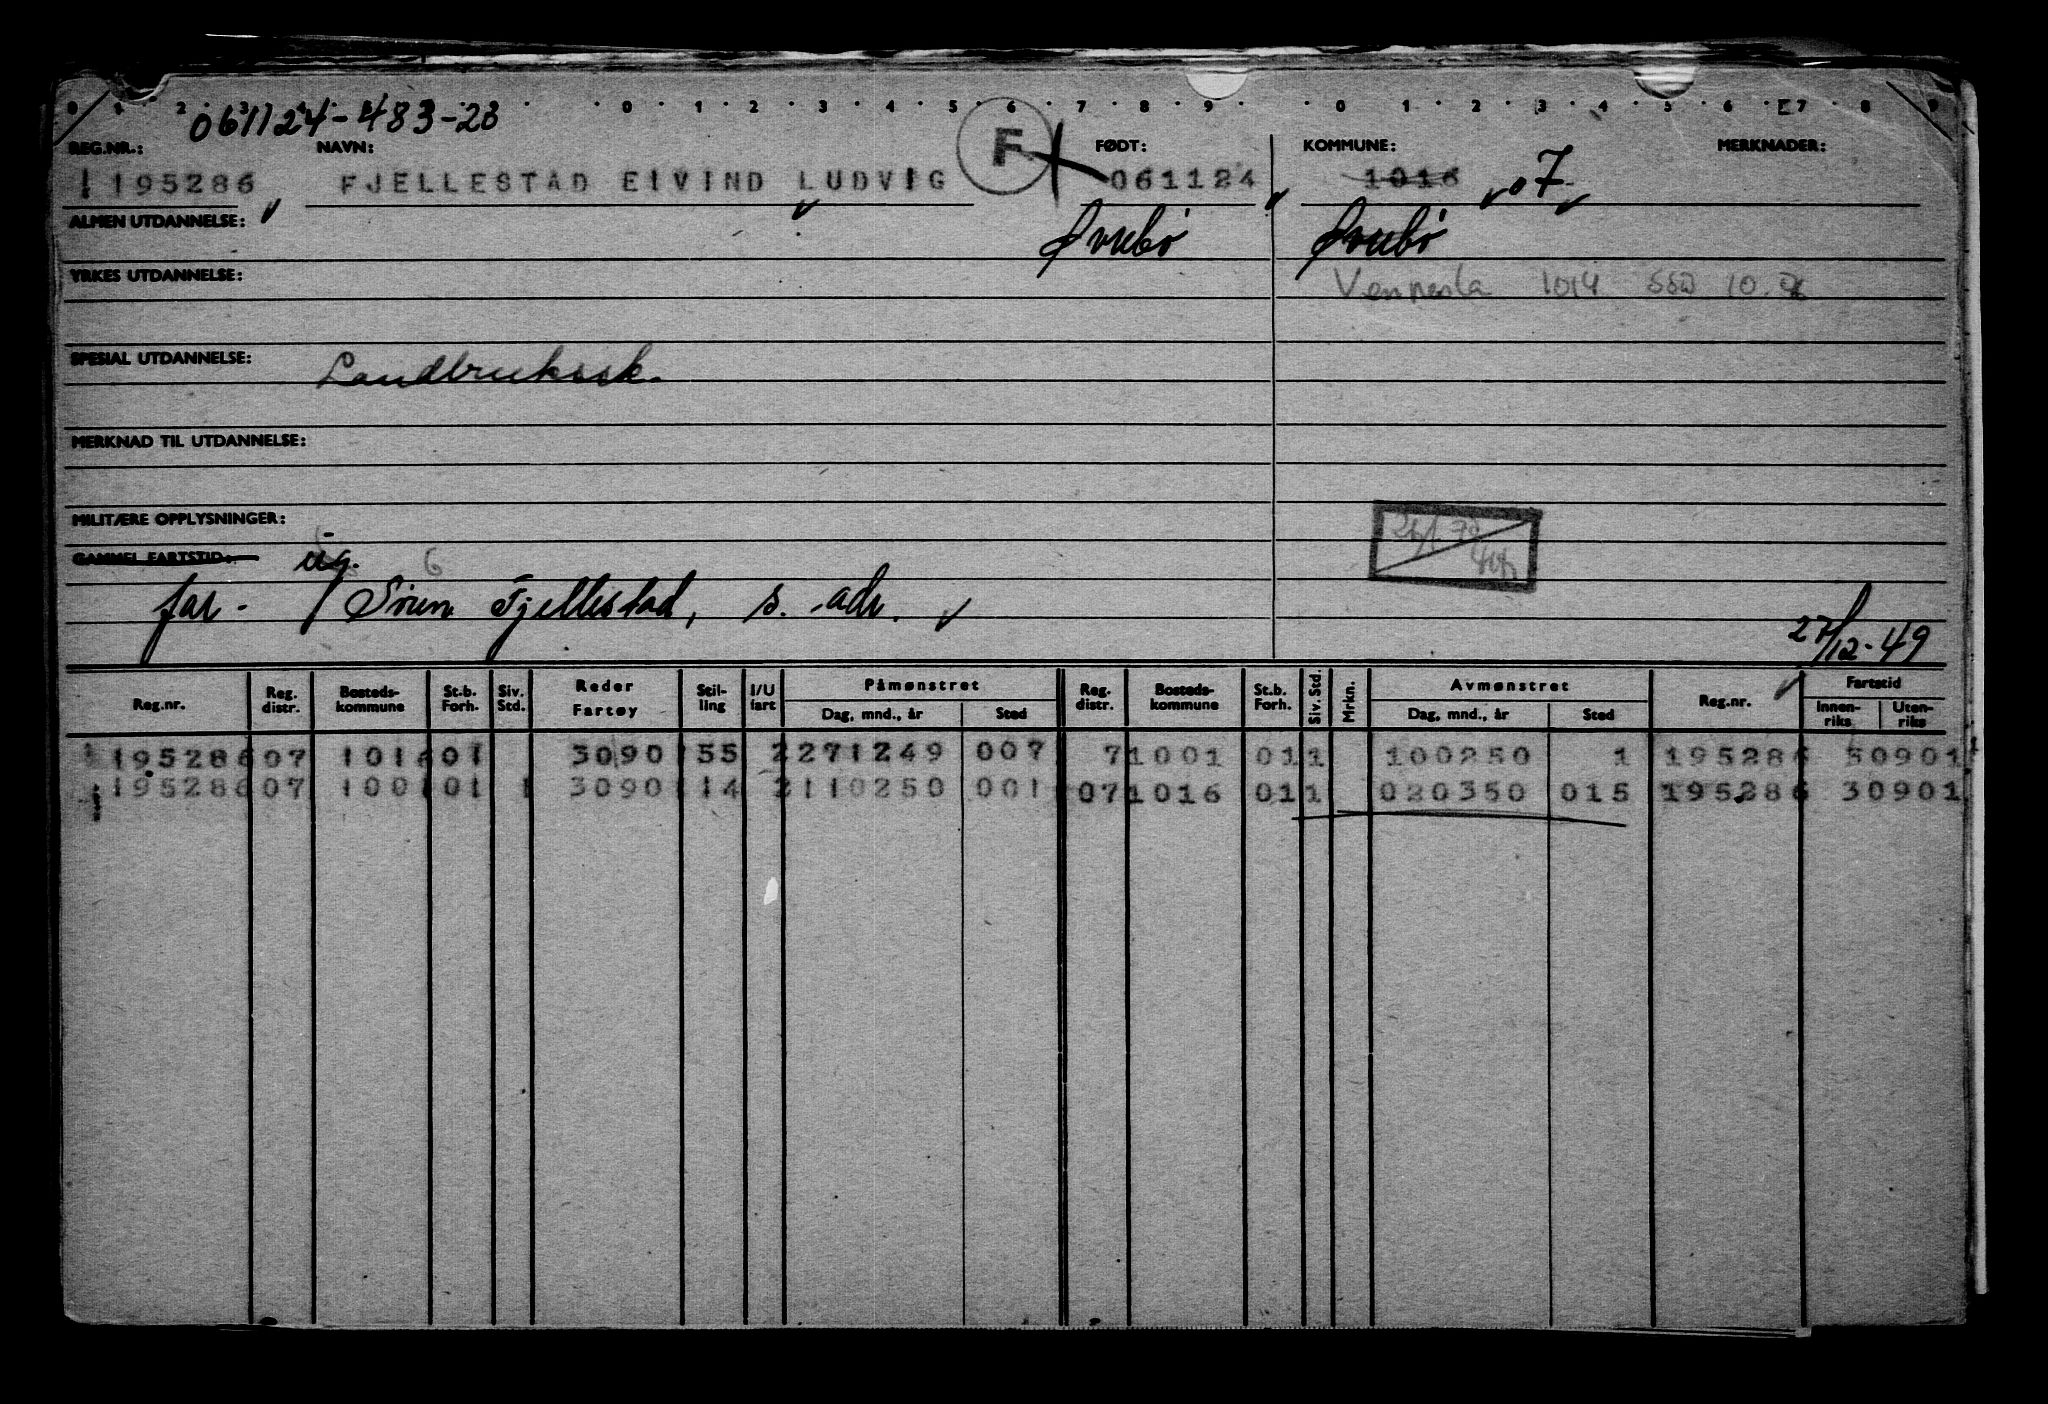 061124-483-23
0 1 2 0 1 2 3 4 5 6 7 8 9 0 1 2 3 4 5 6 7 8 9
REG.NR.: NAVN: F FØDT: KOMMUNE: MERKNADER:
195286 FJELLESTAD EIVIND LUDVIG 061124 1016 07
ALMEN UTDANNELSE: Øvrebø Øvrebø
YRKES UTDANNELSE: Vennesla 1014
SPESIAL UTDANNELSE: Landbrukssk.
MERKNAD TIL UTDANNELSE:
MILITÆRE OPPLYSNINGER:
GAMMEL FARTSTID: ug. 6
far - Søren Fjellestad, s. adr.
27/12-49
Reg.nr. Reg. distr. Bosteds-kommune St.b. Forh. Siv. Std. Reder Fartøy Stil-ling I/U fart Påmønstret Dag, mnd., år Sted Reg. distr. Bosteds-kommune St.b. Forh. Siv. Std. Mrkn. Avmønstret Dag, mnd., år Sted Reg.nr. Fartstid Innen-riks Uten-riks
195286 07 1016 01 3090 55 2 271249 007 7 1001 01 1 100250 1 195286 30901
195286 07 1001 01 1 3090 14 2 110250 001 07 1016 01 1 020350 015 195286 30901